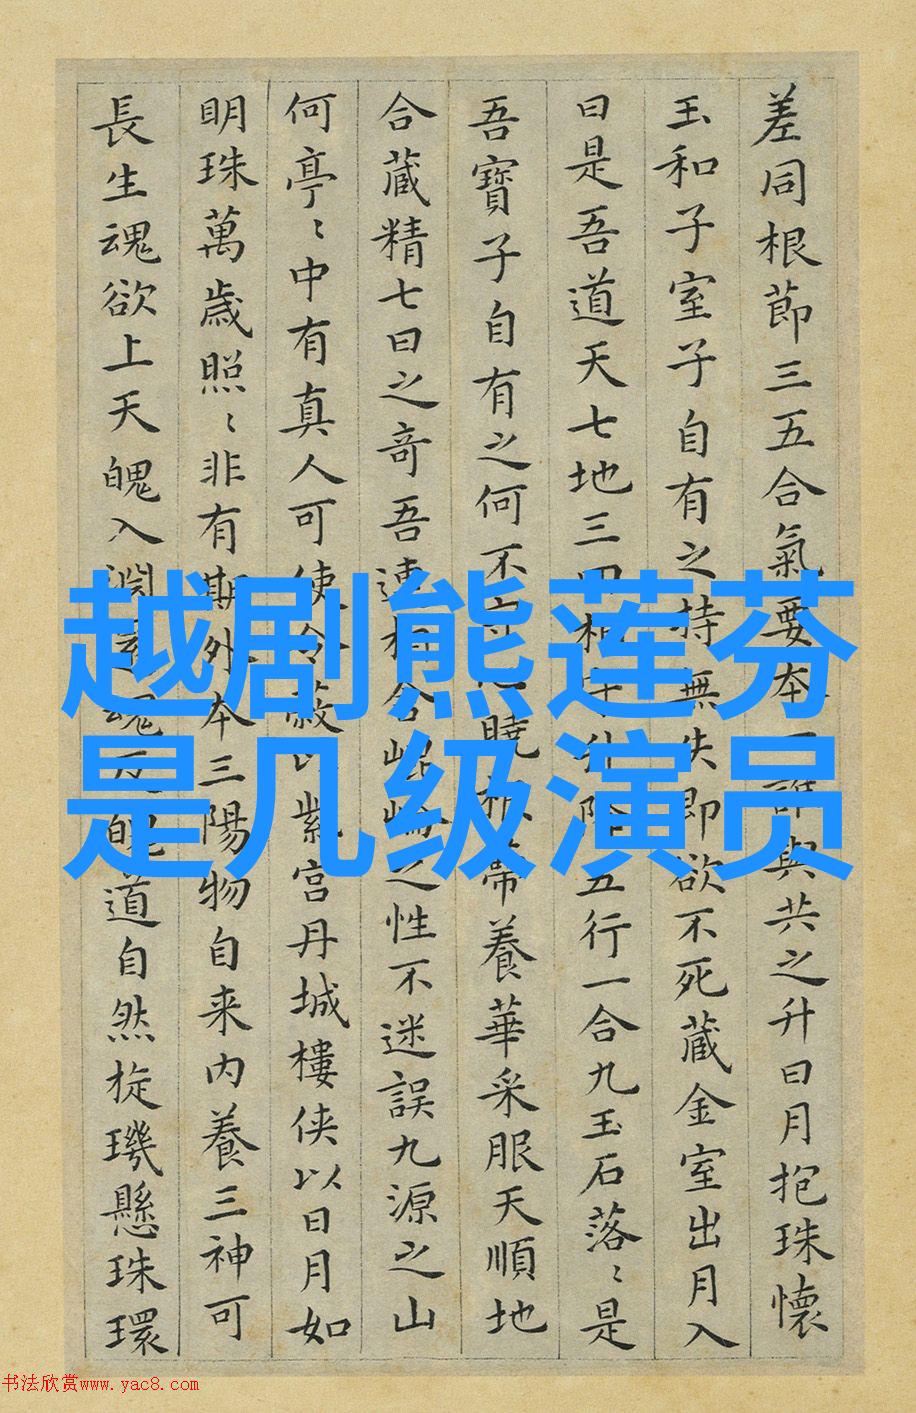 差同根節三五合氣要本一誰與共之升日月抱珠懷
玉和子室子自有之持無失即欲不死藏金室出月入
日是吾道天七地三回相守升降五行一合九玉石落〻是
吾寶子自有之何不守心曉根蒂養華采服天順地
合藏精七日之奇吾連相合崐崘之性不迷誤九源之山
何亭〻中有真人可使令蔽以紫宮丹城樓俠以日月如
明珠萬歲照〻非有期外本三陽物自来内養三神可
長生魂欲上天魄入淵魂魄道自然旋璣懸珠環
越剧熊莲芬
是几级演员
书法欣赏www.yac8.com